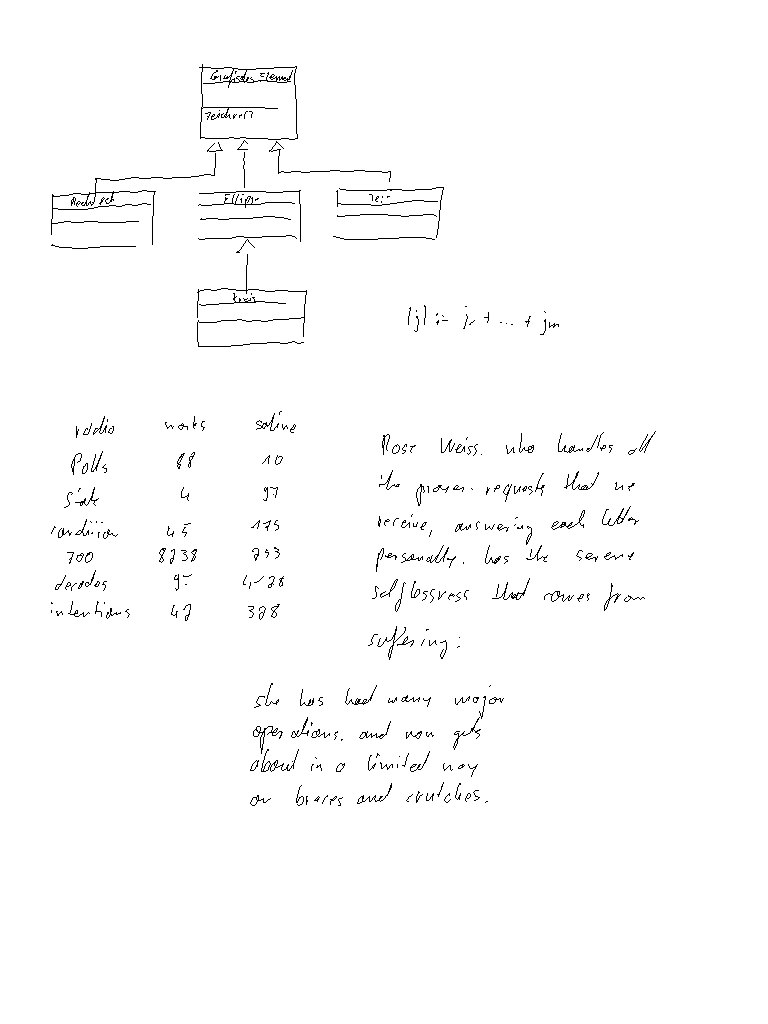 Grafisches Element
zeichnen()
Rechteck
Ellipse
Kreis
|j| := j₁ + ... + jm
radio works saline
Polls 88 10
State 4 97
condition 45 175
700 8238 253
decades 95 4,-28
intentions 42 328
Rose Weiss, who handles all
the prayer-requests that we
receive, answering each letter
personally, has the serene
selflessness that comes from
suffering:
she has had many major
operations, and now gets
about in a limited way
on braces and crutches.